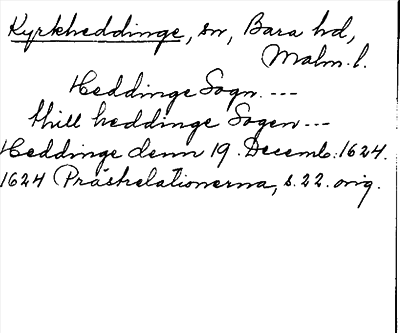 Kyrkheddinge, sn, Bara hd,
Malm. l.
Heddinge Sogn. ---
thill heddinge Sogen ---
Heddinge denn 19. Decemb. 1624.
1624 Prästrelationerna, s. 22. orig.